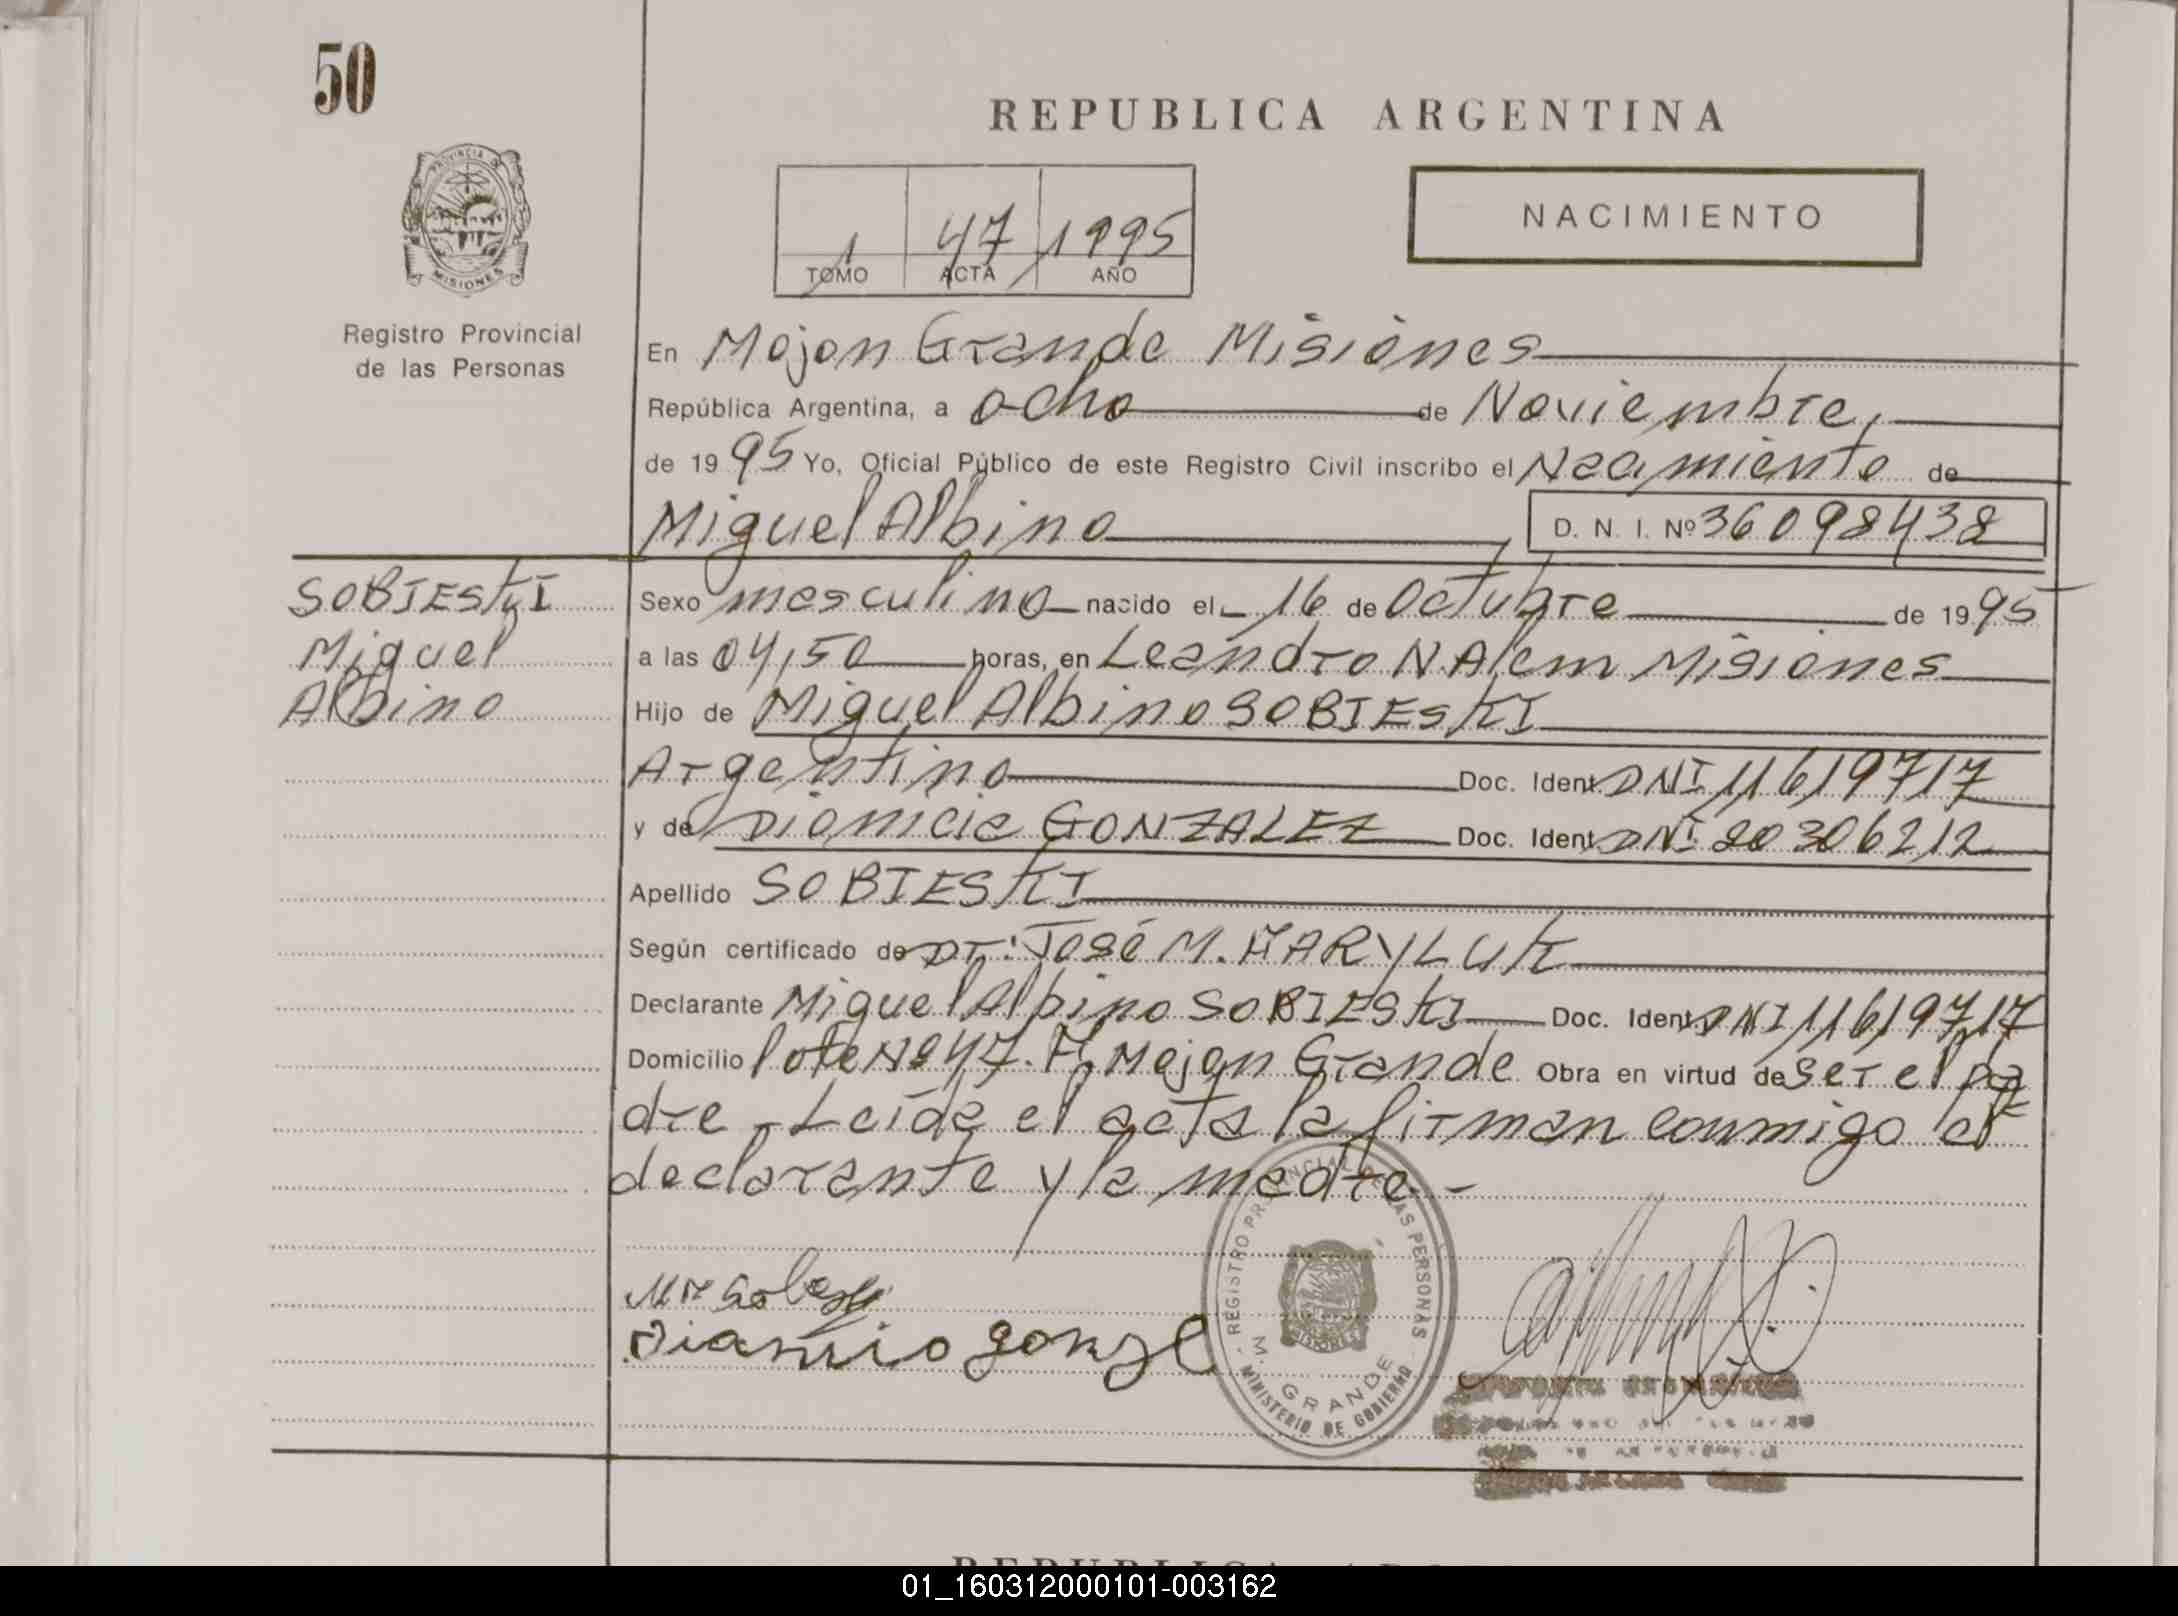 50
REPUBLICA ARGENTINA
PROVINCIA DE
MISIONES
Registro Provincial
de las Personas
1 47 1995
TOMO ACTA AÑO
NACIMIENTO
En Mojon Grande Misiones
República Argentina, a ocho de Noviembre,
de 19 95 Yo, Oficial Público de este Registro Civil inscribo el Nacimiento de
Miguel Albino D. N. I. Nº 36098438
SOBIESKI
Miguel
Albino
Sexo masculino nacido el 16 de Octubre de 19 95
a las 04,50 horas, en Leandro N. Alem Misiones
Hijo de Miguel Albino SOBIESKI
Argentino Doc. Ident. DNI 11619717
y de Dionicia GONZALEZ Doc. Ident. DNI 20306212
Apellido SOBIESKI
Según certificado de Dr: José M. HARYLUK
Declarante Miguel Albino SOBIESKI Doc. Ident. DNI 11619717
Domicilio lote Nº 47. Mojon Grande Obra en virtud de ser el pa
dre - Leída el acta la firman conmigo el
declarante y la madre.-
REGISTRO PROVINCIAL DE LAS PERSONAS
M. GRANDE
MINISTERIO DE GOBIERNO
REPUBLICA
01_160312000101-003162